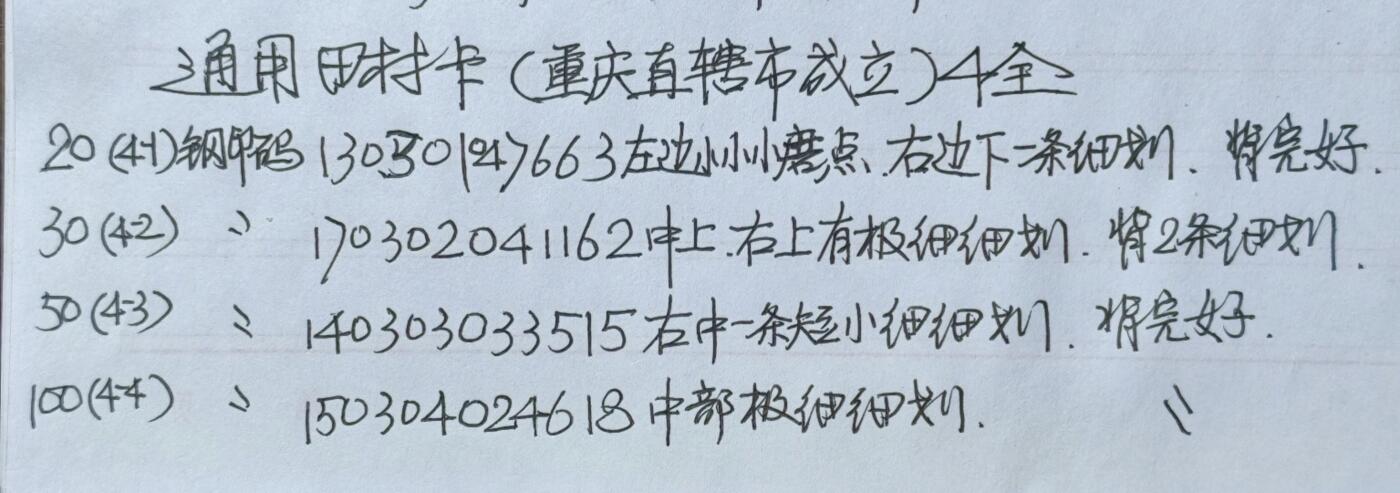 通用田村卡(重庆直辖市成立)4全
20(4-1)钢印码130301047663左边小小小磨点.右边下一条细划.背完好.
30(4-2) 〃 170302041162中上.右上有极细细划.背2条细划.
50(4-3) 〃 140303033515右中一条短小细细划.背完好.
100(4-4) 〃 150304024618中部极细细划. 〃